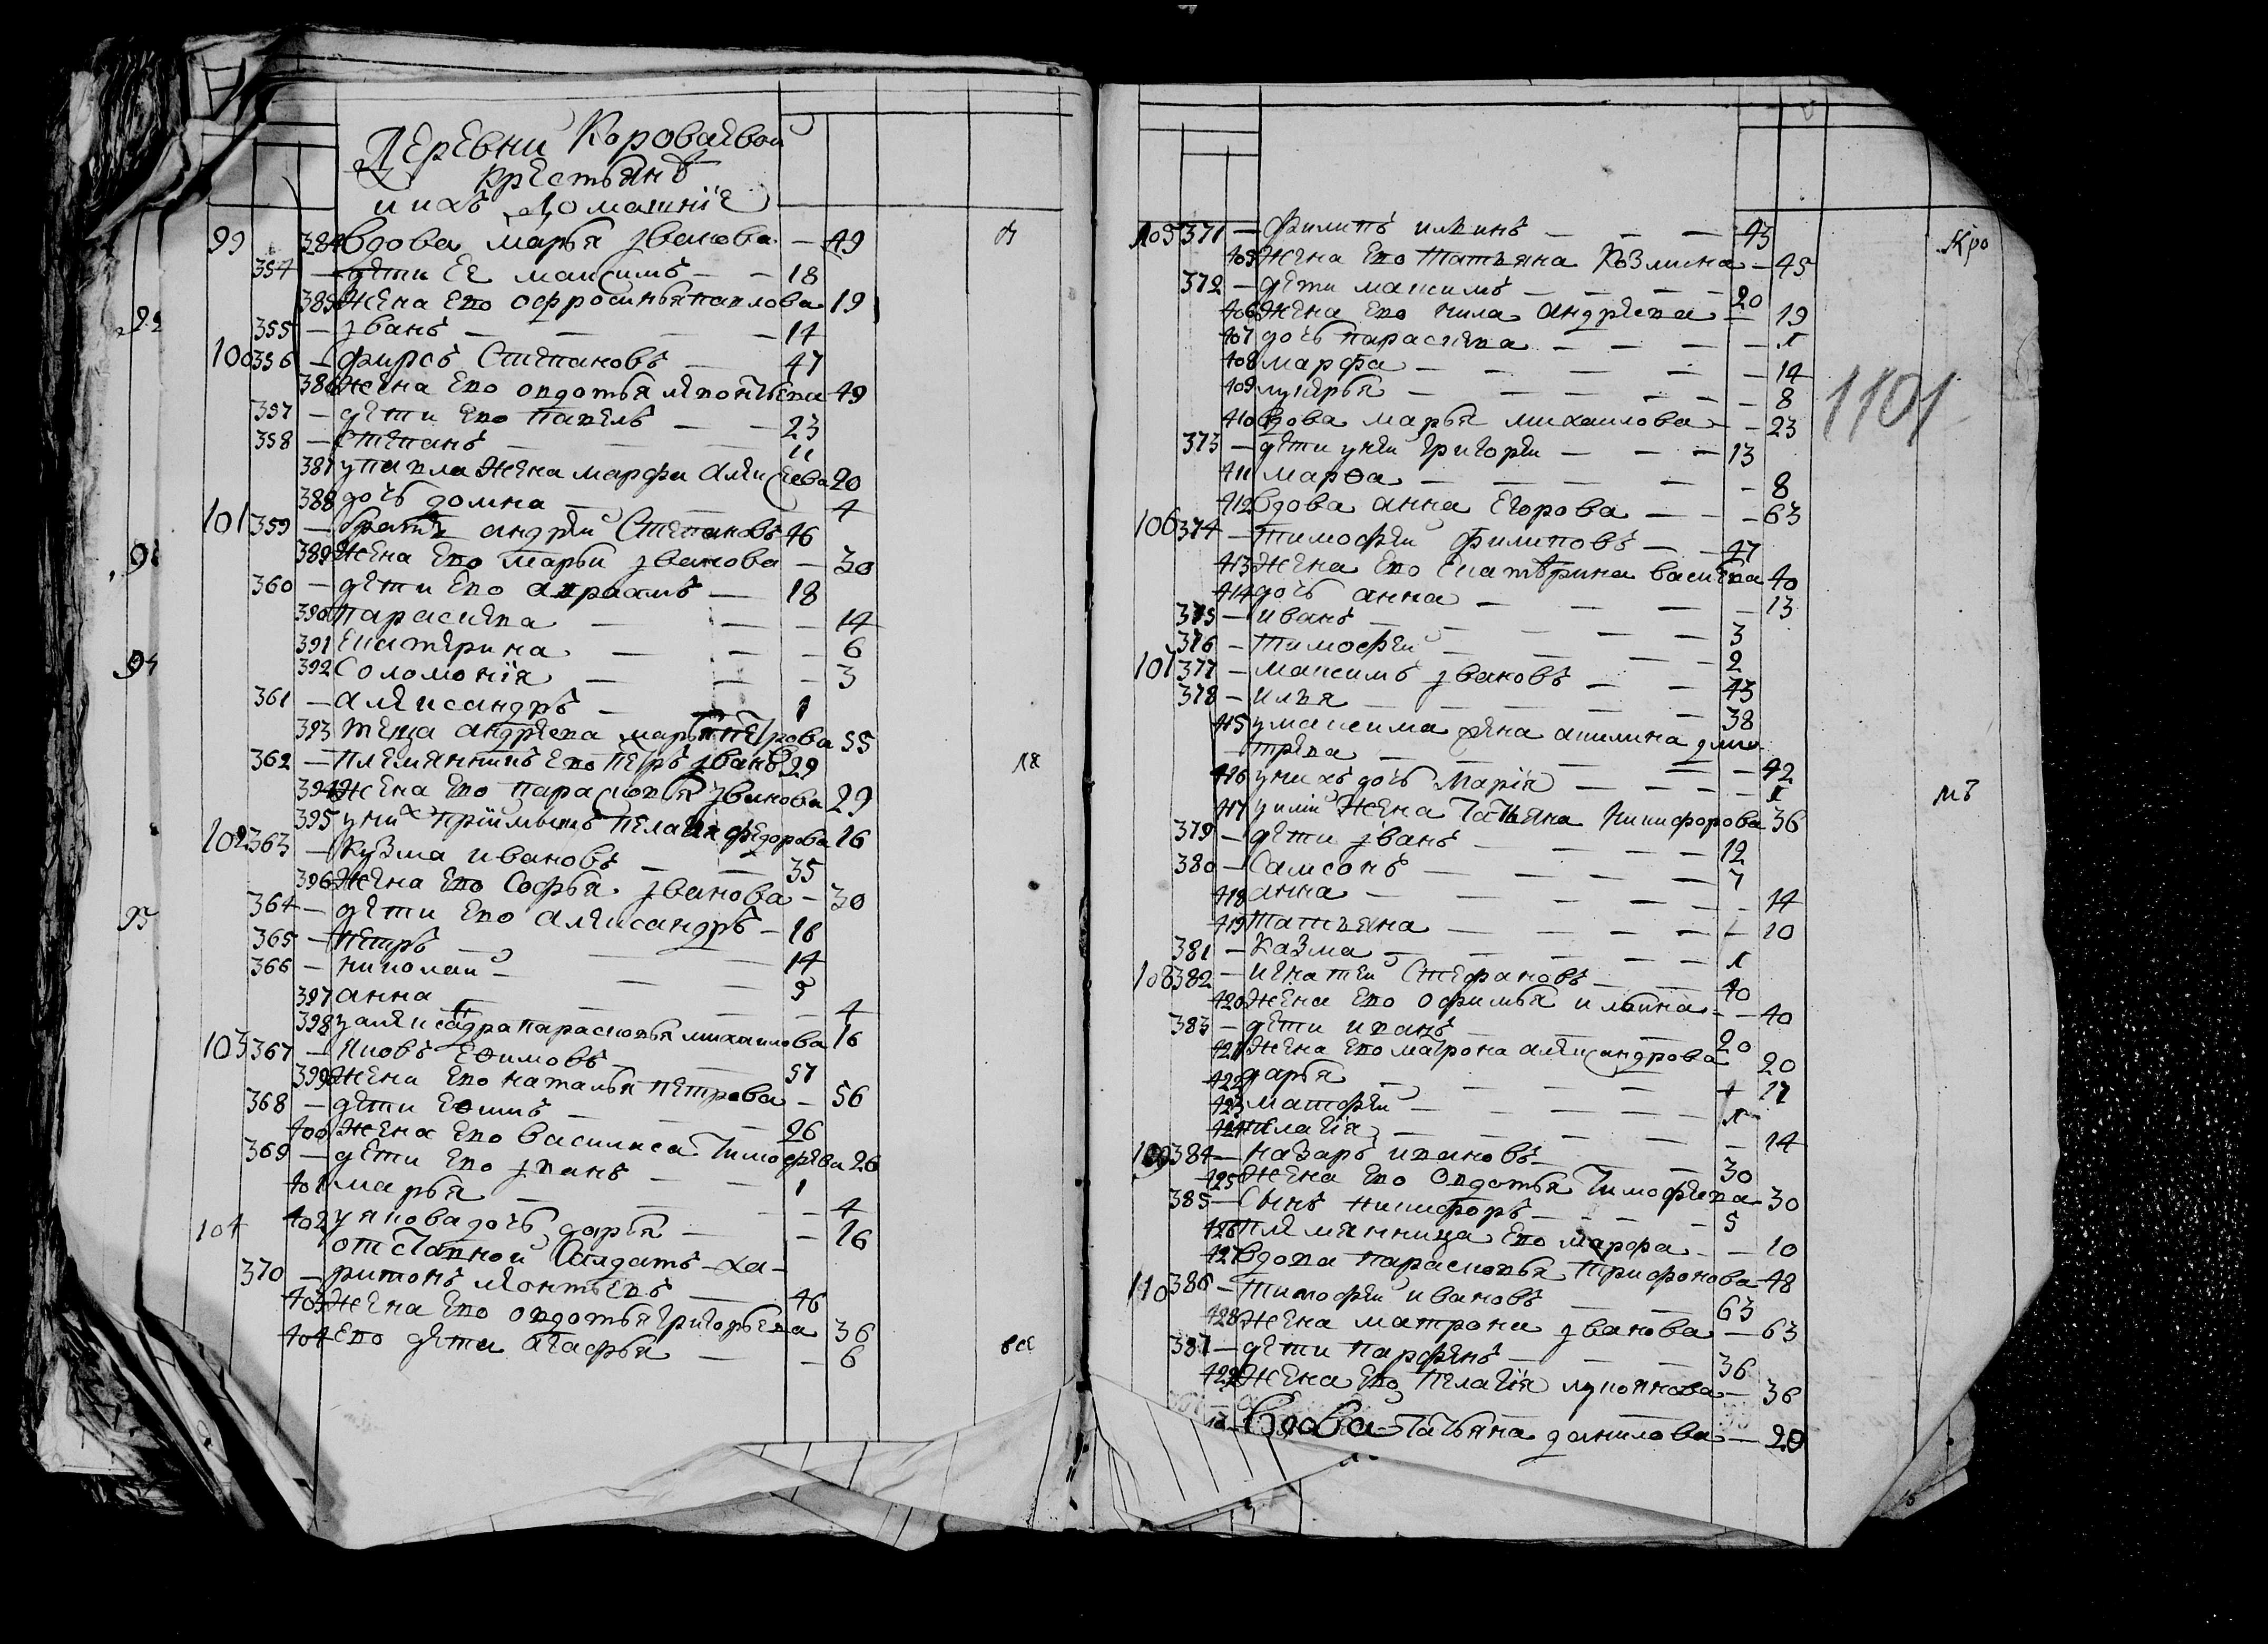 Деревни Короваевой
крестьянъ
и ихъ домашнiе
99 384 вдова марья iванова — 49
354 — дети ее максимъ — — 18
385 жена ево офросинья павлова 19
355 — iванъ — — — 14
100 356 — фирсъ Степановъ — 47
386 жена ево овдотья леонтьева 49
357 — дети ево павелъ — — 23
358 — степанъ — — 11
387 у павла жена марфа алексеева 20
388 дочь домна — — 4
101 359 — братъ андреи Степановъ 46
389 жена ево марья iванова — 30
360 — дети ево авраамъ — 18
390 парасkева — — — 14
391 екатерина — — — 6
392 Соломонiя — — — 3
361 — александръ — — 1
393 теща андреева марья петрова 55
362 — племянникъ ево петръ iванъ 29
394 жена ево парасковья iванова 29
395 у них приимышъ пелагия федорова 16
102 363 — кузма ивановъ — — 35
396 жена ево Софья iванова — 30
364 — дети ево александръ — 18
365 — петръ — — — 14
366 — николаи — — 9
397 анна — — — 4
398 у александра парасковья михаилова 16
103 367 — яковъ еѳимовъ — — 57
399 жена ево наталья петрова — 56
368 — дети еѳимъ — — 26
400 жена ево василиса тимофева 26
369 — дети ево iванъ — — 1
401 марья — — — 4
104 402 у якова дочь дарья — — 16
отставнои Салдатъ ха-
370 — ритонъ леонтьевъ — 46
403 жена ево овдотья григорьева 36
404 ево дети агафья — — 6
105 371 — филипъ илкинъ — — — 43
405 жена ево татьяна козмина — 45
372 — дети максимъ — — — 20
406 жена ево кила андреева — 19
407 дочь парасkева — — — 1
408 марфа — — — — 14
409 лукерья — — — — 8
410 вдова марья михаилова — — 23
373 — дети у неи григореи — — — 13
411 марѳа — — — — 8
412 вдова анна егорова — — — 63
106 374 — тимофеи филиповъ — — 47
413 жена ево екатерина васильева 40
414 дочь анна — — — — 13
375 — иванъ — — — — 3
376 — тимофеи — — — 2
107 377 — максимъ iвановъ — — 43
378 — илья — — — — 38
415 у максима жена акилина дми-
трева — — — — 42
416 у нихъ дочь Марiя — — — — 1
417 у илiи жена татьяна никифорова 36
379 — дети iванъ — — — 12
380 — Самсонъ — — — 7
418 анна — — — — 14
419 татьяна — — — — 10
381 — казма — — — — 1
108 382 — игнатеи Стефановъ — — 40
420 жена ево офимья ильина — — 40
383 — дети иванъ — — — 20
421 жена ево матрона александрова 20
422 дарья — — — — 17
423 матфеи — — — — 1
424 пелагiя — — — — 14
109 384 — назаръ ивановъ — — 30
425 жена ево овдотья тимофеева 30
385 — Сынъ никифоръ — — — 5
426 племянница ево марфа — — 10
427 вдова парасковья трифонова 48
110 386 — тимофеи ивановъ — — 63
428 жена матрона iванова — 63
387 — дети парфенъ — — — 36
429 жена ево пелагiя лукоянова — 36
вдова татьяна данилова — 20
1101